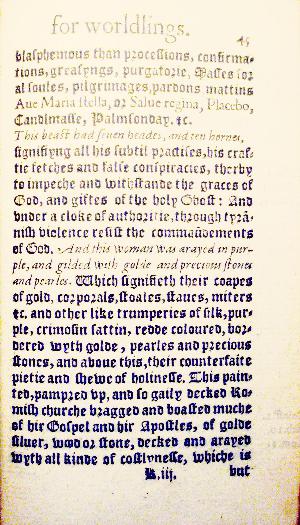 for worldlings.
45
blasphemous than processions, confirma-
tions, greasyngs, purgatorie, Masses for
al soules, pilgrimages, pardons mattins
Aue Maria stella, or Salue regina, Placebo,
Candlmasse, Palmsonday. &c.
This beast had seuen heades, and ten hornes,
signifiyng all his subtil practises, his craf-
tie fetches and false conspiracies, therby
to impeche and withstande the graces of
God, and giftes of the holy Ghost: And
vnder a cloke of authoritie, through tyrā-
nish violence resist the commaūdements
of God. And this woman was arayed in pur-
ple, and gilded with golde and precious stones
and pearles. Which signifieth their coapes
of gold, corporals, stoales, staues, miters
&c. and other like trumperies of silk, pur-
ple, crimosin sattin, redde coloured, bor-
dered wyth golde, pearles and precious
stones, and aboue this, their counterfaite
pietie and shewe of holinesse. This pain-
ted, pampred vp, and so gaily decked Ro-
mish churche bragged and boasted muche
of hir Gospel and hir Apostles, of golde
siluer, wood or stone, decked and arayed
wyth all kinde of costlynesse, whiche is
K.iij. but